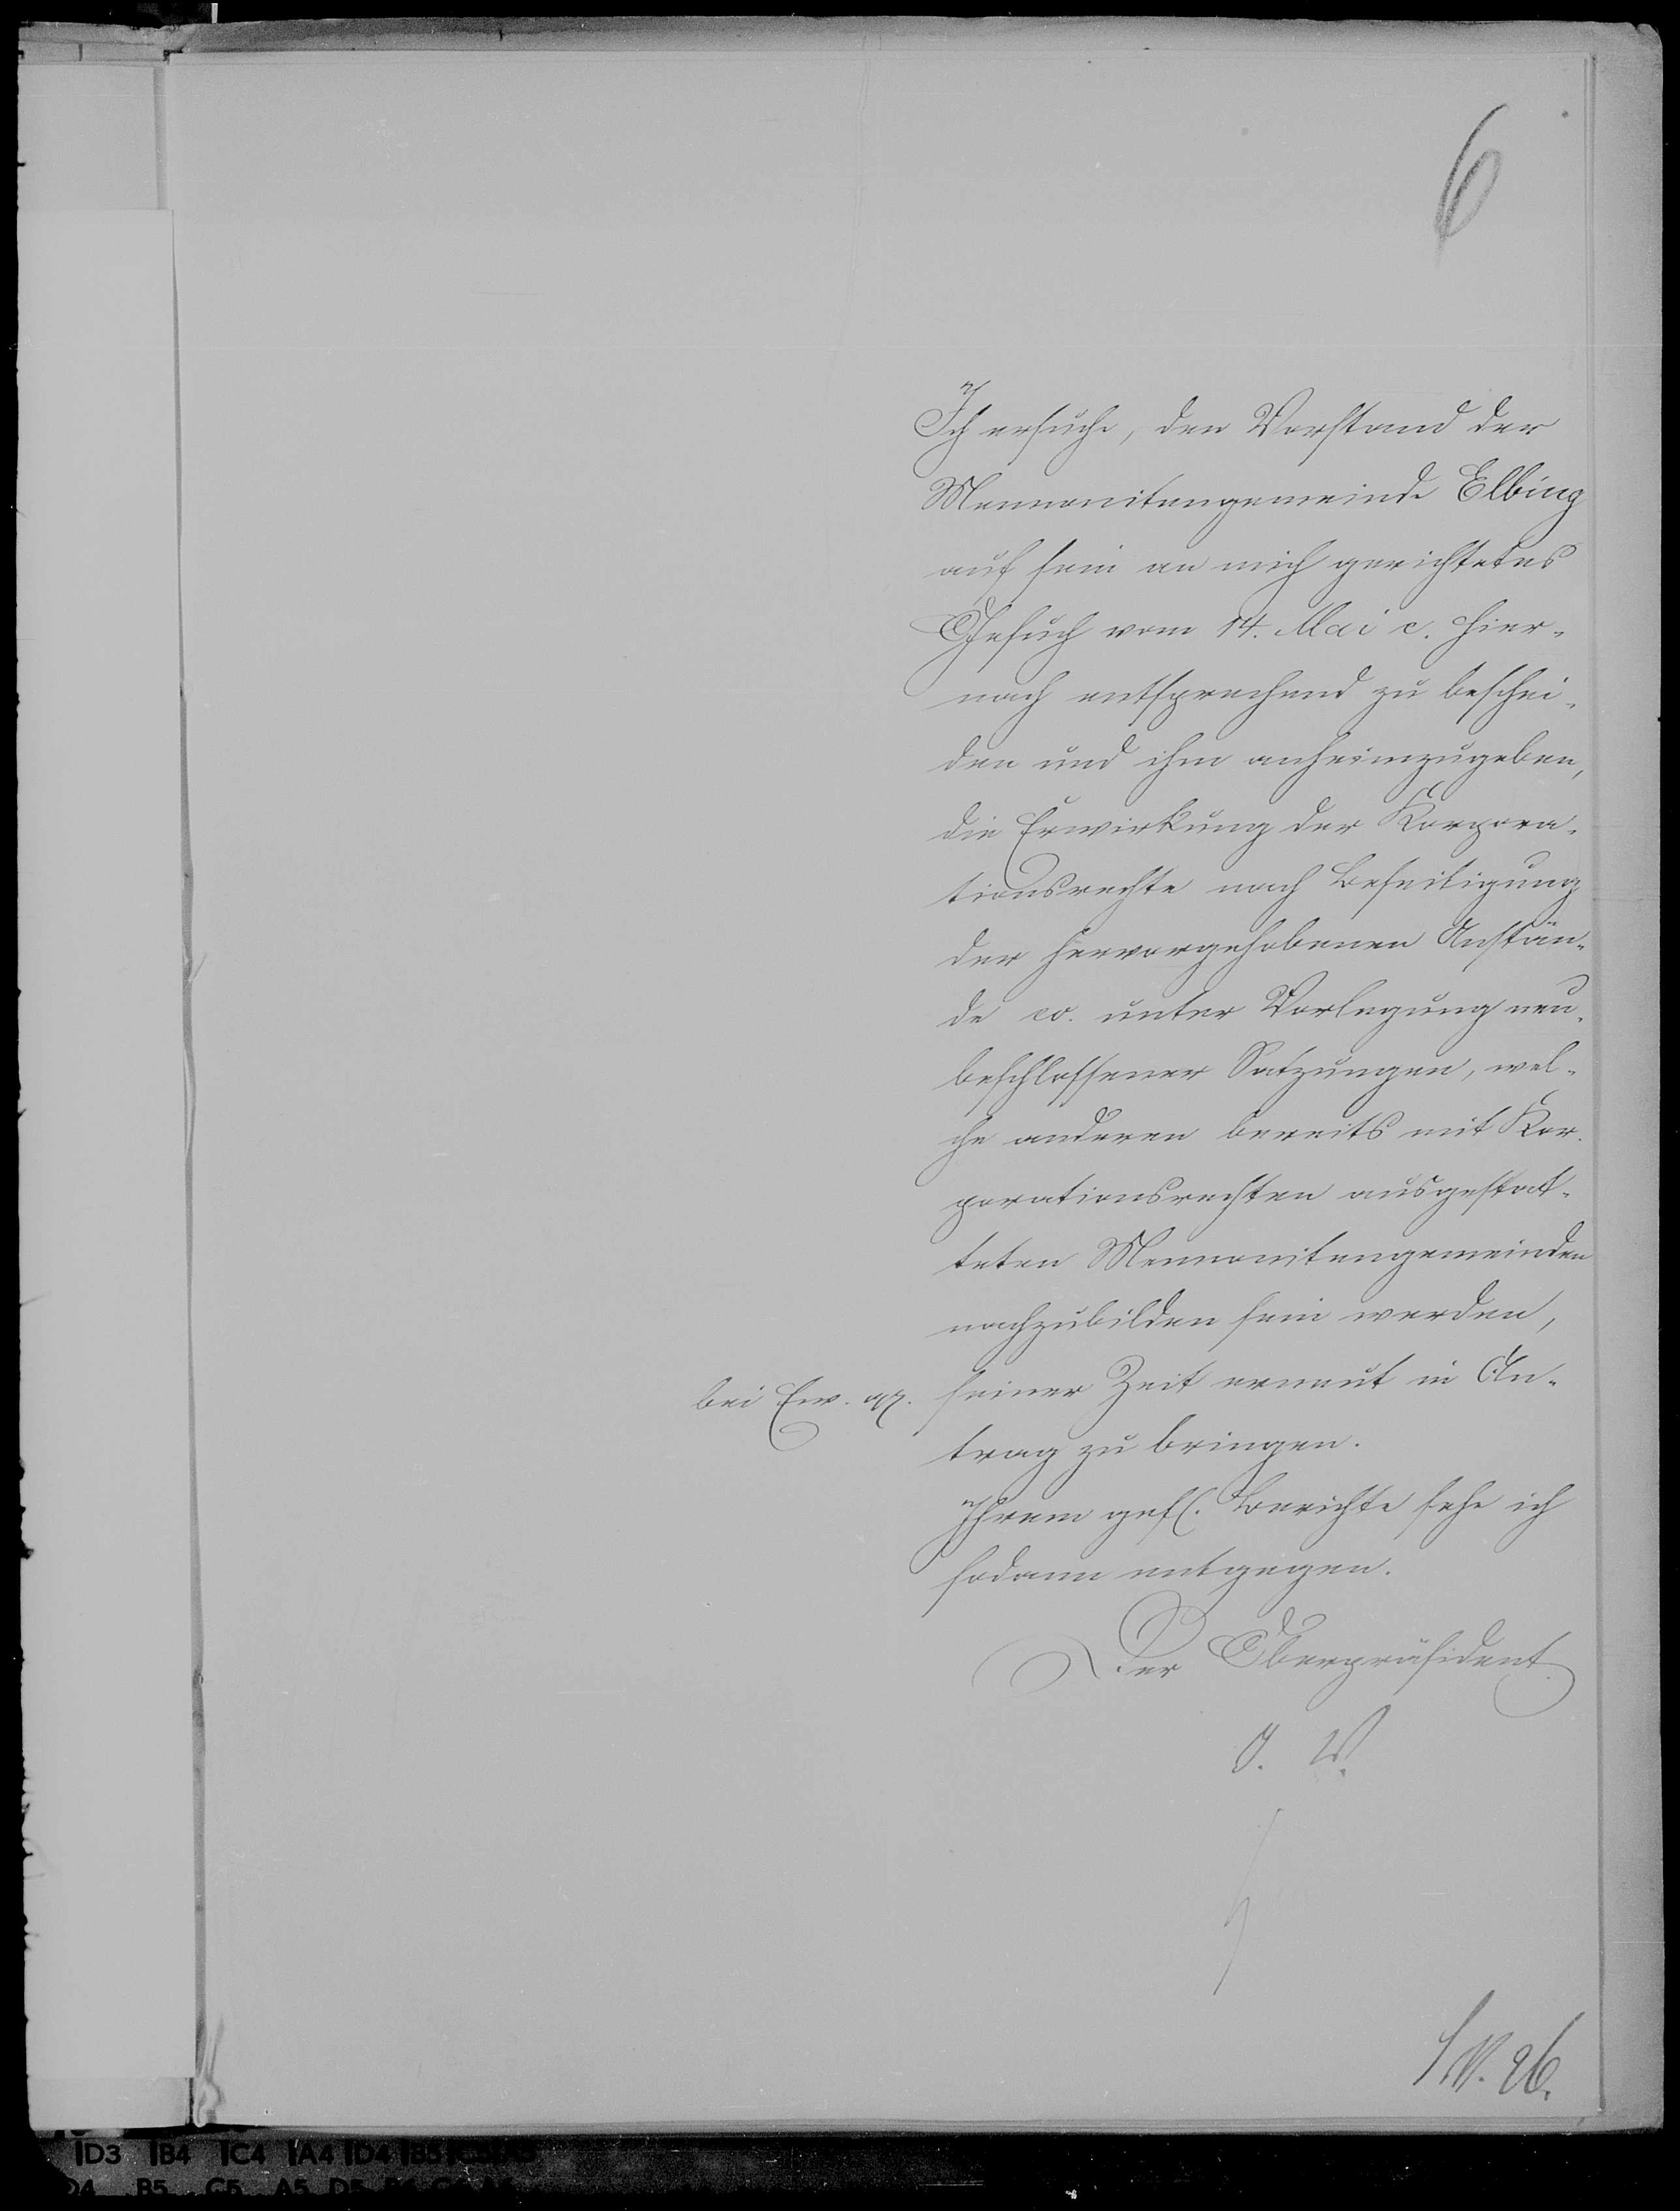 6
Ich ersuche, den Vorstand der
Mennonitengemeinde Elbing
auf sein an mich gerichtetes
Gesuch vom 14. Mai c. hier-
nach entsprechend zu beschei-
den und ihm anheimzugeben,
die Erwirkung der Korpora-
tionsrechte nach Beseitigung
der hervorgehobenen Anstän-
de co. unter Vorlegung neu-
beschlossener Satzungen, wel-
che anderen bereits mit Kor-
porationsrechten ausgestat-
teten Mennonitengemeinden
nachzubilden sein werden,
bei Ew. pp. seiner Zeit erneut in An-
trag zu bringen.
Ihrem gefl. Berichte sehe ich
sodann entgegen.
Der Oberpräsident
I. V.
26.
D3 B4 C4 A4 D4 B5
D4 B5 C5 A5 D5